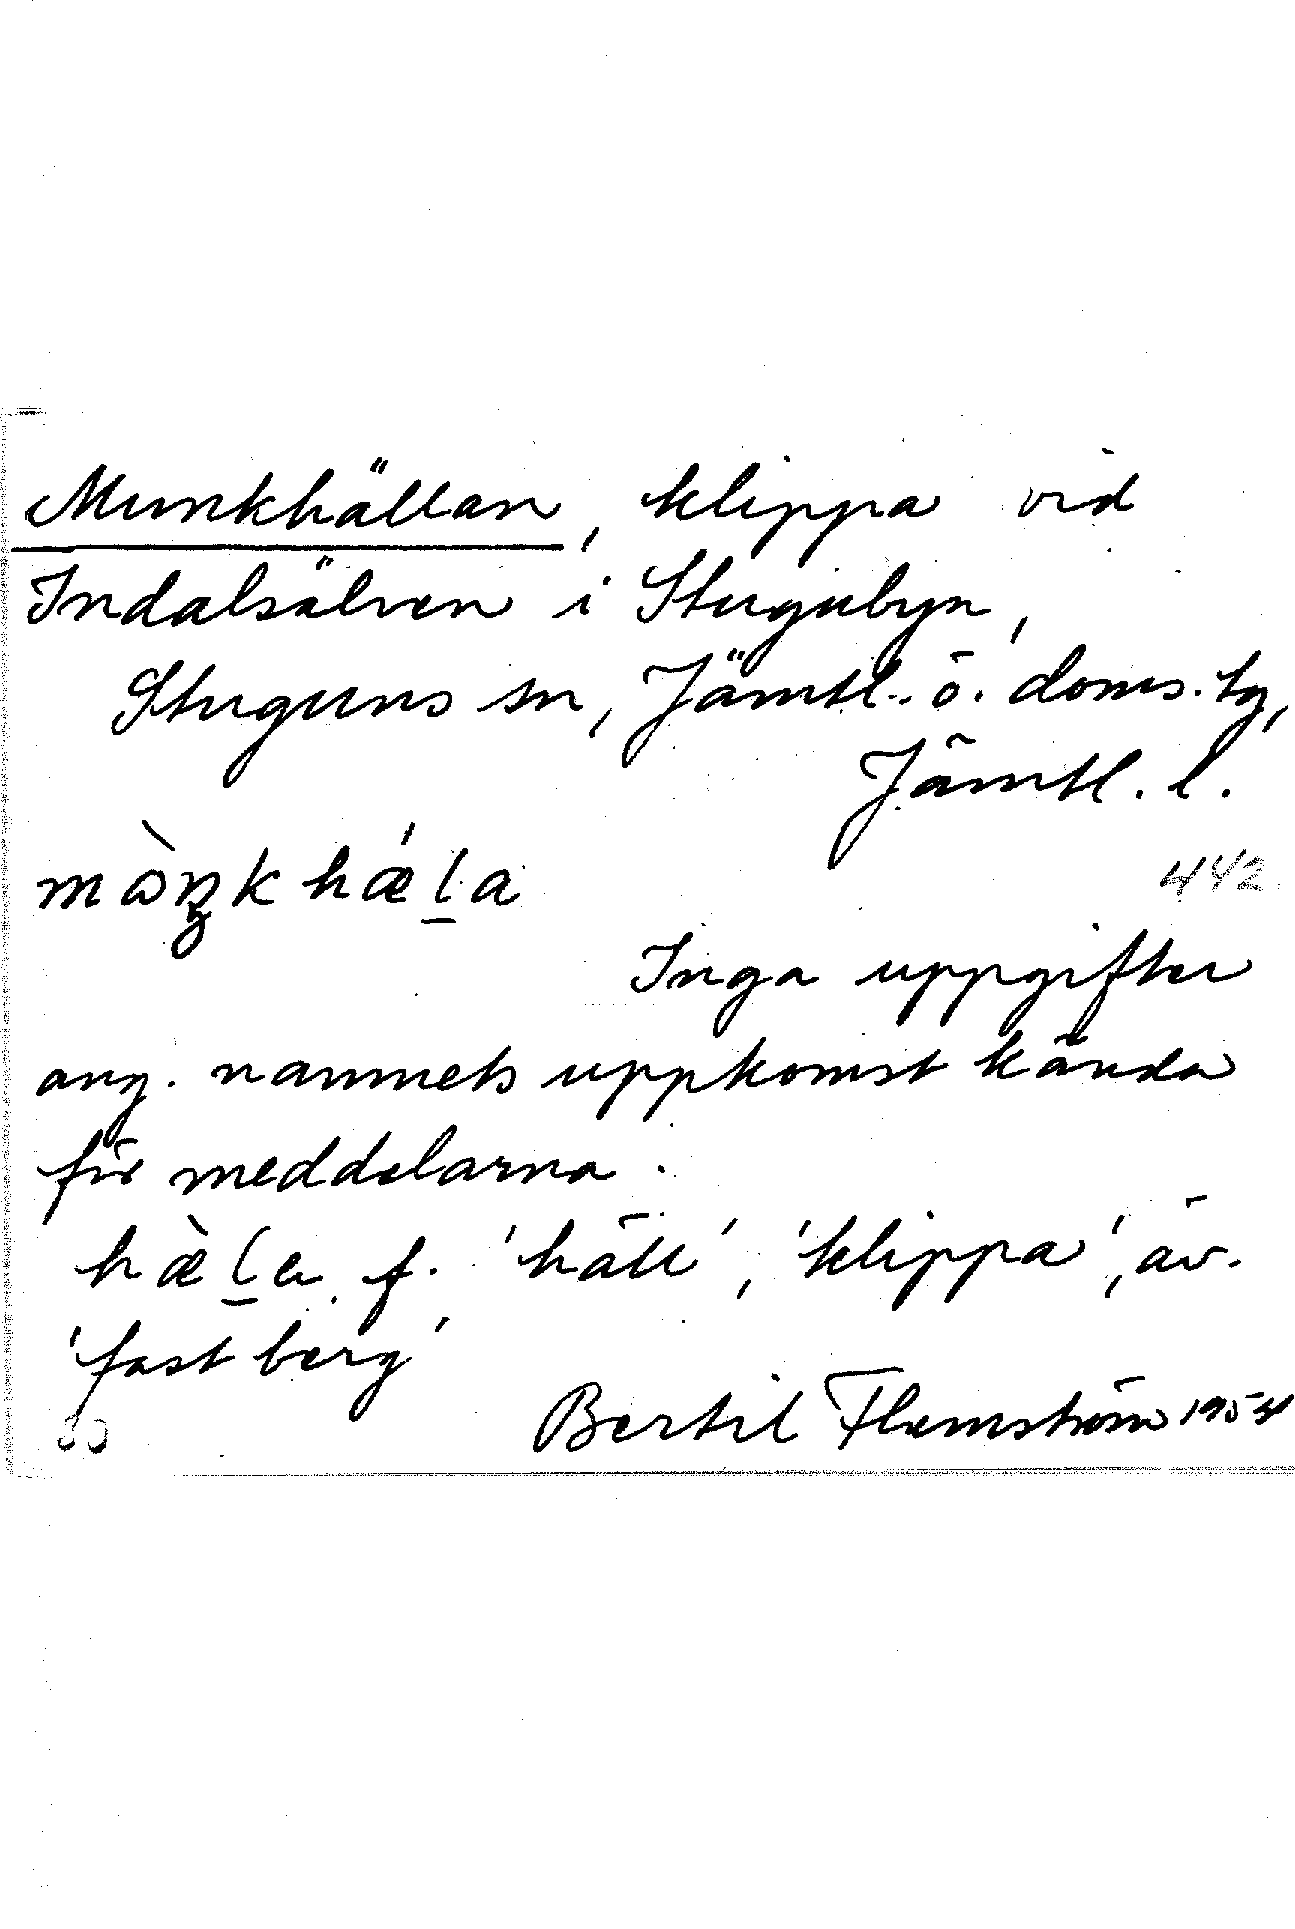 Munkhällan, klippa vid
Indalsälven i Stugubyn,
Stuguns sn, Jämtl. ö. doms. tg,
Jämtl. l.
mòŋkhǽl̠a
442
Inga uppgifter
ang. namnets uppkomst kända
för meddelarna.
hæ̀l̠a f. 'häll', 'klippa', äv.
'fast berg'
Bertil Flemström 1954